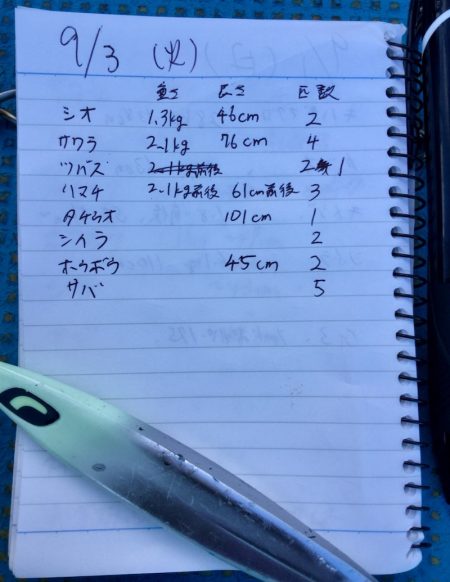 9/3 (火)
重さ 長さ 匹数
シオ 1.3kg 46cm 2
サワラ 2.1kg 76cm 4
ツバス 1
ハマチ 2.1kg前後 61cm前後 3
タチウオ 101cm 1
シイラ 2
ホウボウ 45cm 2
サバ 5